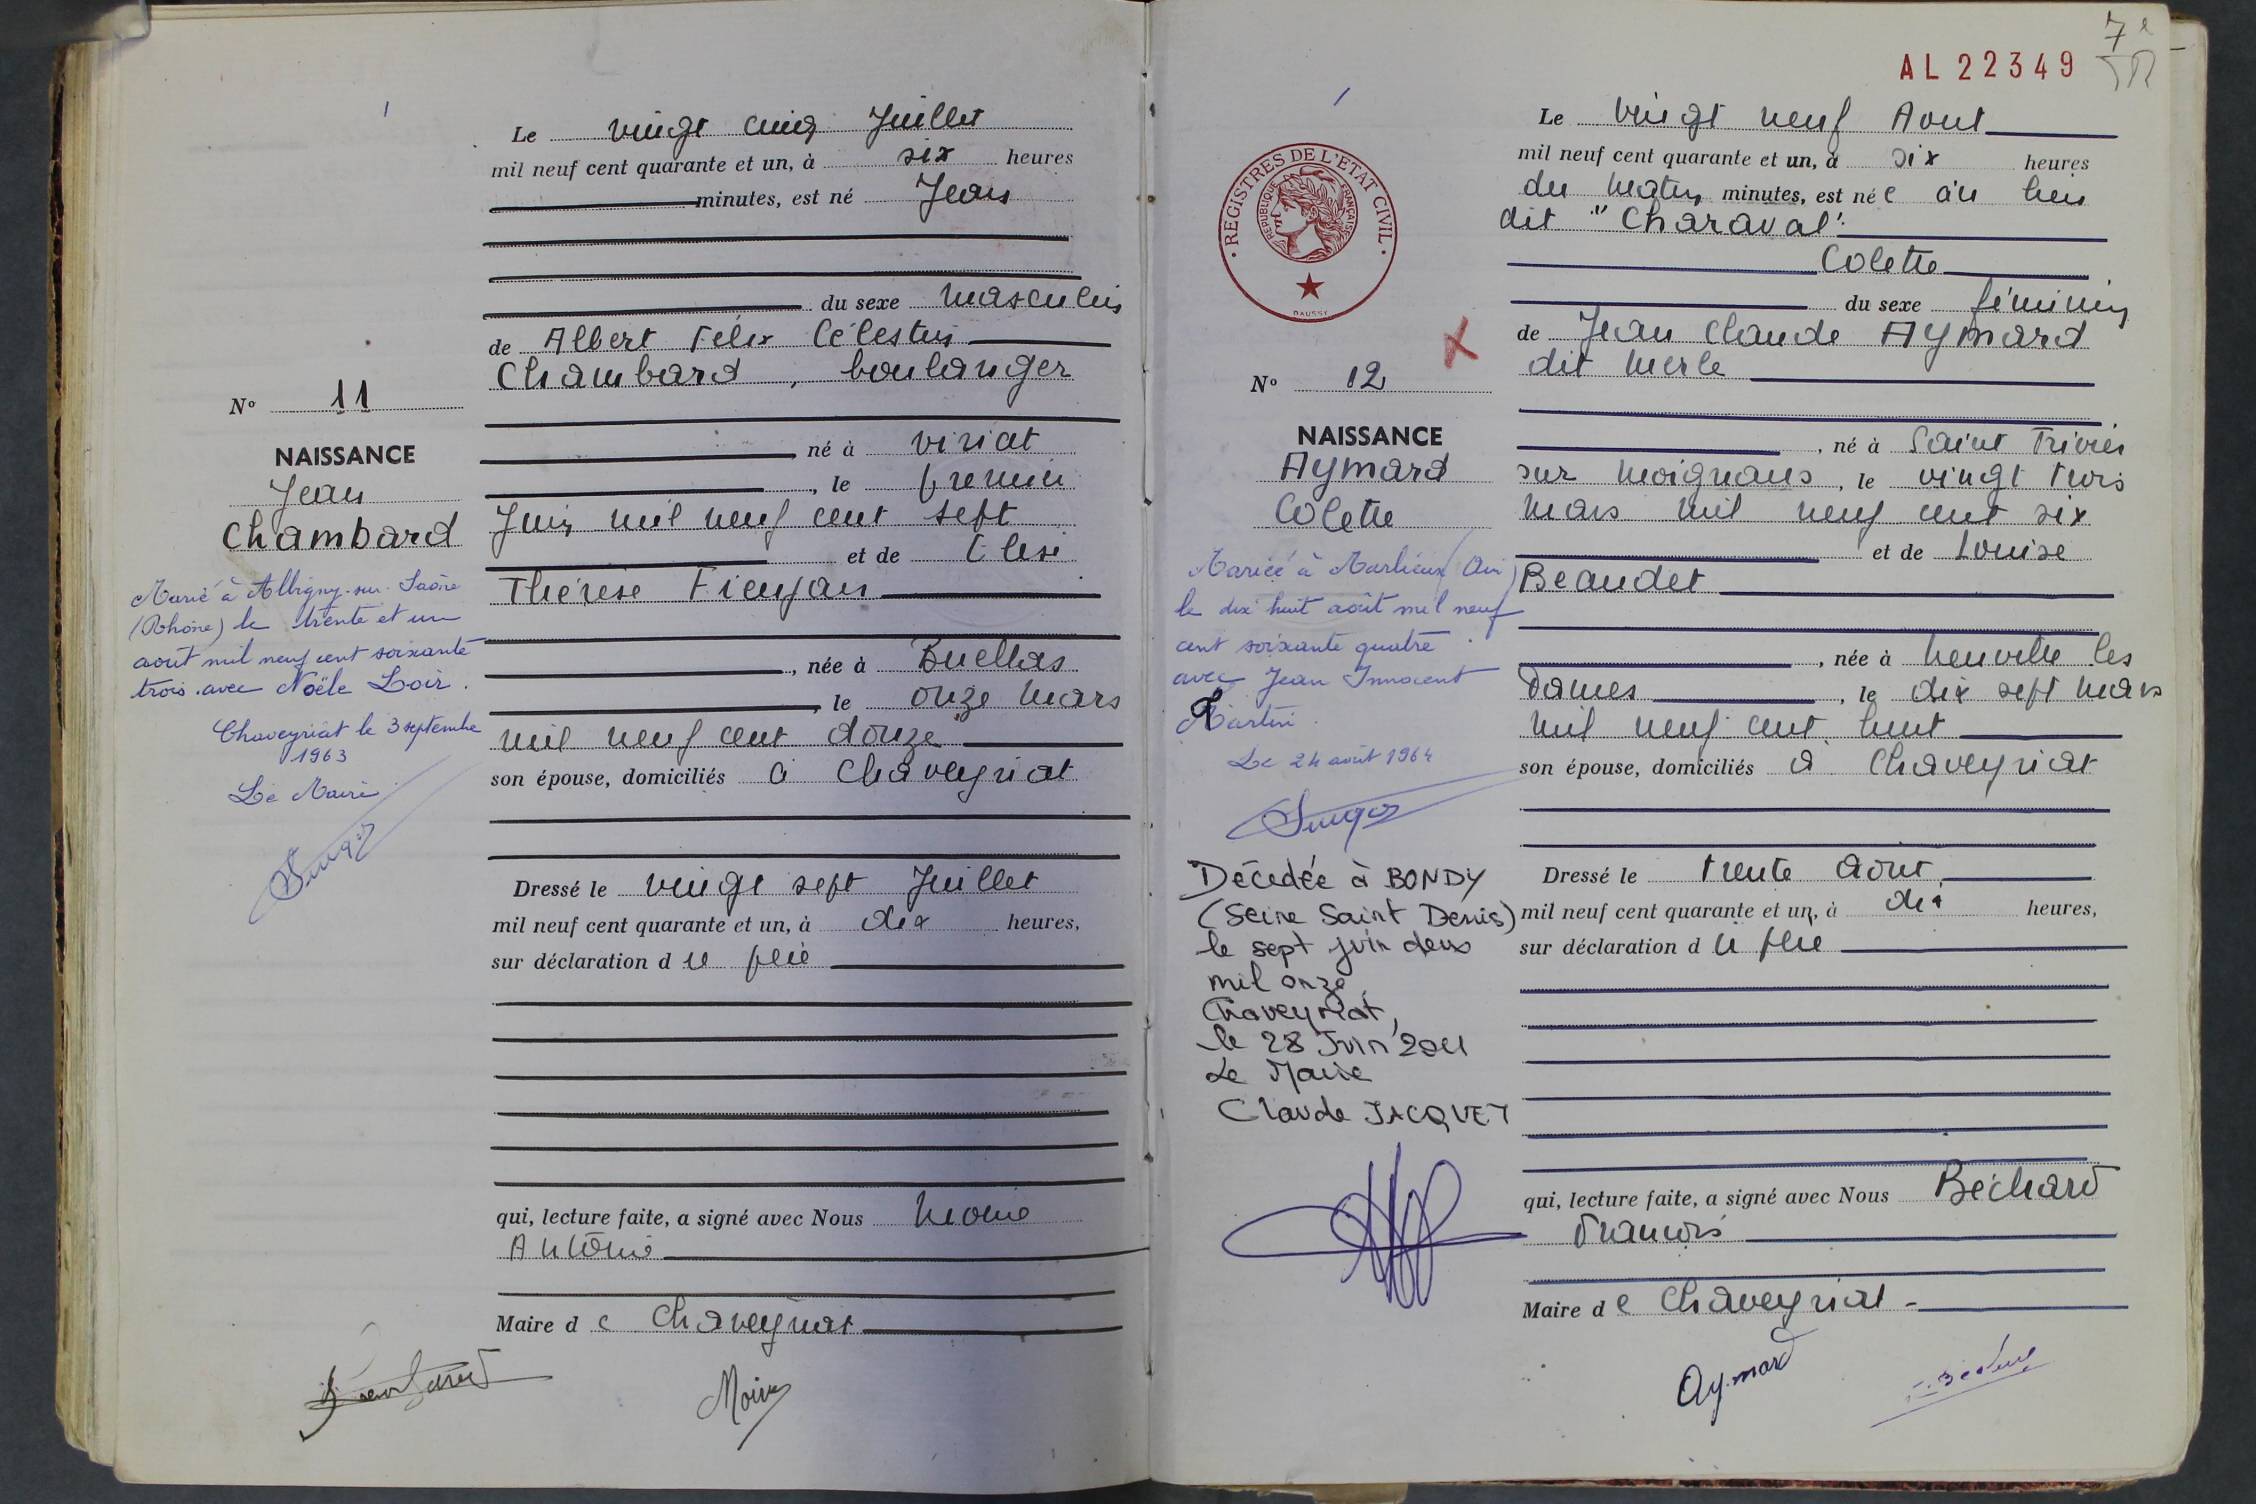 Le vingt cinq Juillet
mil neuf cent quarante et un, à six heures
minutes, est né Jean
du sexe masculin
de Albert Félix Célestin
Chambard, boulanger
né à Viriat
, le premier
Juin mil neuf cent sept
et de Elise
Thérèse
, née à Buellas
, le onze mars
mil neuf cent douze
son épouse, domiciliés à Chaveyriat
Dressé le vingt sept Juillet
mil neuf cent quarante et un, à dix heures,
sur déclaration du père
qui, lecture faite, a signé avec Nous
Antoine
Maire de Chaveyriat
Nº 11
NAISSANCE
Jean
Chambard
Marié à Albigny-sur-Saône
(Rhône) le trente et un
août mil neuf cent soixante
trois avec Noële Loir.
Chaveyriat le 3 septembre
1963
Le Maire
AL 22349
7e
REGISTRES DE L'ETAT CIVIL
REPUBLIQUE FRANÇAISE
DAUSSY
Le vingt neuf Aout
mil neuf cent quarante et un, à six heures
du matin minutes, est née au lieu
dit "Charaval"
Colette
du sexe féminin
de Jean Claude Aymard
dit Merle
, né à Saint Trivier
sur Moignans, le vingt trois
mars mil neuf cent six
et de Louise
Beaudet
, née à Neuville les
Dames, le dix sept mars
mil neuf cent huit
son épouse, domiciliés à Chaveyriat
Dressé le trente Aout
mil neuf cent quarante et un, à dix heures,
sur déclaration du père
qui, lecture faite, a signé avec Nous Béchard
François
Maire de Chaveyriat
Aymard
Nº 12
NAISSANCE
Aymard
Colette
Mariée à Marlieux (Ain)
le dix huit août mil neuf
cent soixante quatre
avec Jean Innocent
Martin.
Le 24 août 1964
Décédée à BONDY
(Seine Saint Denis)
le sept juin deux
mil onze
Chaveyriat,
le 28 Juin 2011
Le Maire
Claude JACQUET